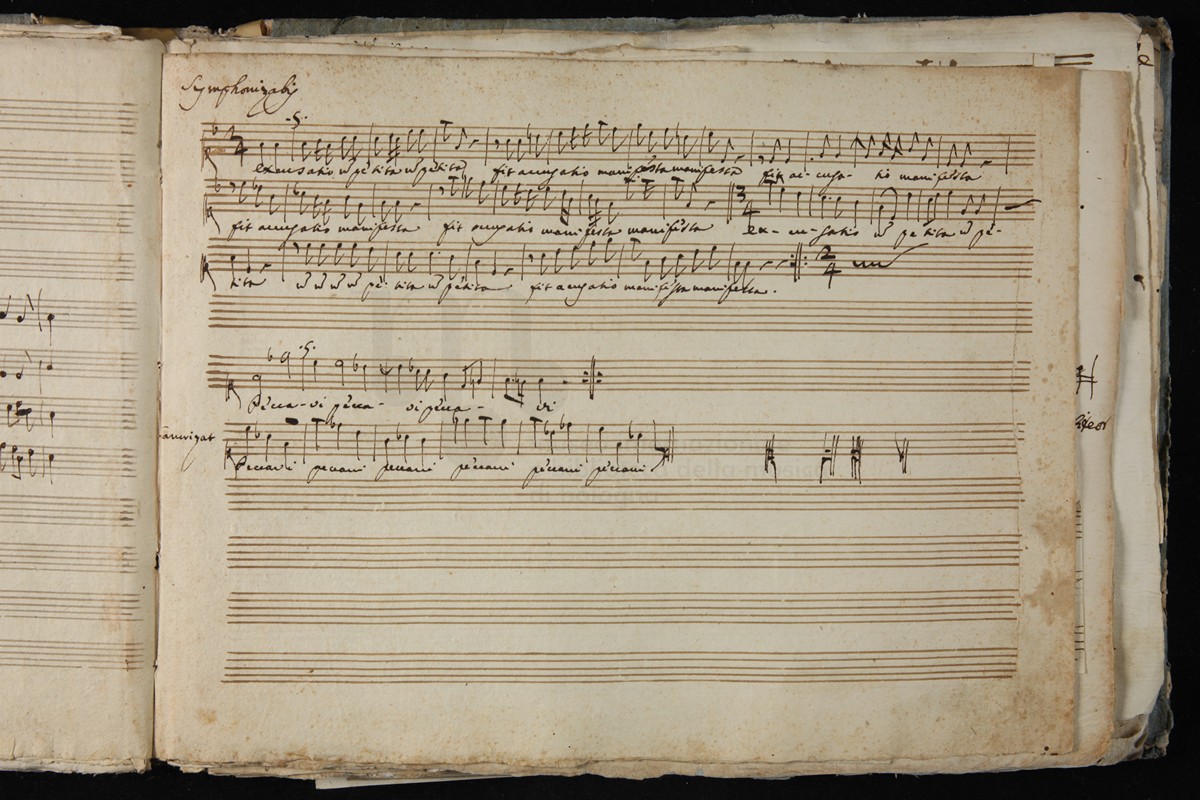 Symphonizabis
excusatio nō petita nō petita fit accusatio manifesta manifesta fit ac-cusa-tio manifesta
fit accusatio manifesta fit accusatio manifesta manifesta ex-cu-satio nō petita nō pe-
tita nō nō nō nō petita nō petita fit accusatio manifesta manifesta.
Pecca-vi pecca-vi pecca-vi
Peccavi peccavi peccavi peccavi peccavi peccavi